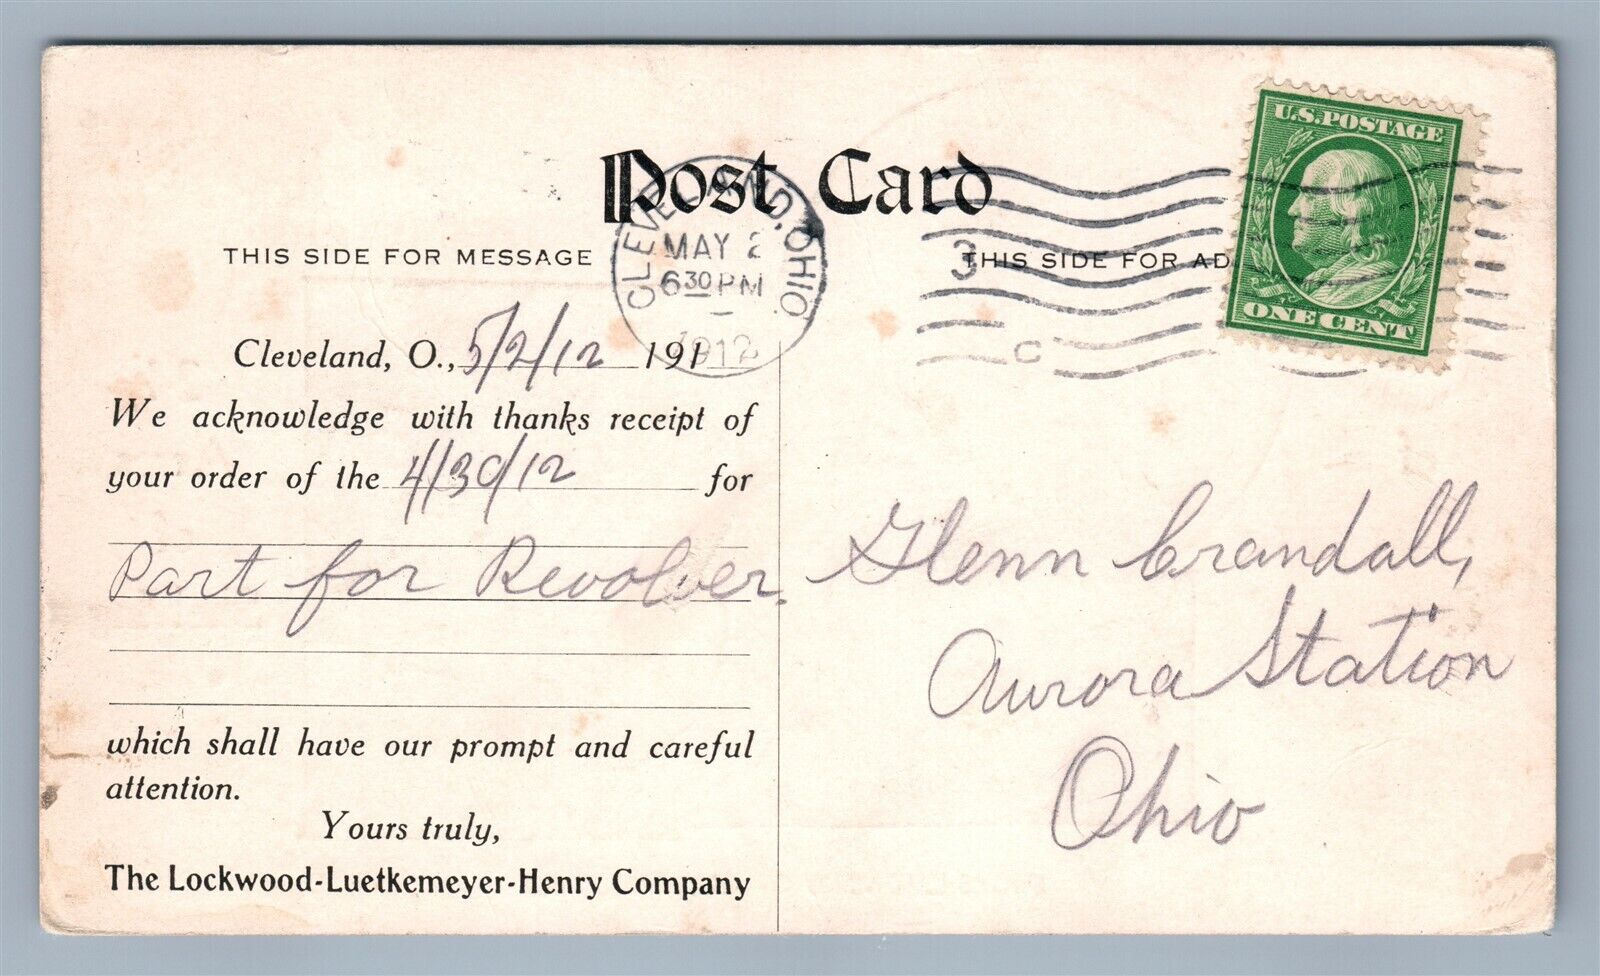 Post Card
THIS SIDE FOR MESSAGE
CLEVELAND, OHIO.
MAY 2
6 30 PM
1912
3
C
THIS SIDE FOR AD
U.S. POSTAGE
ONE CENT
Cleveland, O., 5/2/12 191
We acknowledge with thanks receipt of
your order of the 4/30/12 for
Part for Revolver.
which shall have our prompt and careful
attention.
Yours truly,
The Lockwood-Luetkemeyer-Henry Company
Glenn Crandall,
Aurora Station
Ohio